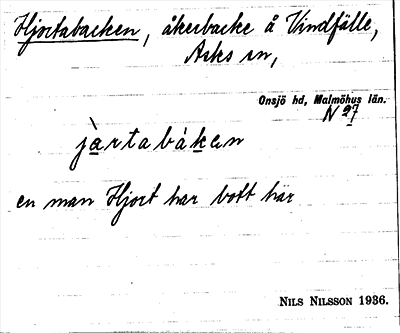 Hjortabacken, åkerbacke å Vindfälle,
Asks sn,
Onsjö hd, Malmöhus län.
N 27
jàrtabákan
en man Hjort har bott här
NILS NILSSON 1936.